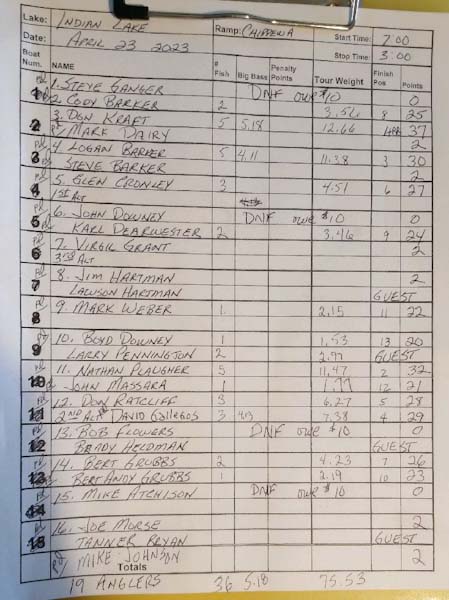 Lake: INDIAN LAKE Ramp: CHIPPEWA Start Time: 7:00
Date: APRIL 23 2023 Stop Time: 3:00
Boat Num. NAME # Fish Big Bass Penalty Points Tour Weight Finish Pos Points
1 1. STEVE GANGER DNF owe $10 0
2. CODY BARKER 2 3.56 8 25
2 3. DON KRAFT 5 5.18 12.66 37
MARK DAIRY 2
3 4. LOGAN BARKER 5 4.11 11.38 3 30
STEVE BARKER 2
4 5. GLEN CRONLEY 3 4.51 6 27
1st ALT
5 6. JOHN DOWNEY DNF owe $10 0
KARL DEARWESTER 2 3.46 9 24
6 7. VIRGIL GRANT 2
3RD ALT
7 8. JIM HARTMAN 2
LAWSON HARTMAN GUEST
8 9. MARK WEBER 1 2.15 11 22
9 10. BOYD DOWNEY 1 1.53 13 20
LARRY PENNINGTON 2 2.97 GUEST
10 11. NATHAN PLAUGHER 5 11.47 2 32
JOHN MASSARA 1 1.77 12 21
11 12. DON RATCLIFF 3 6.27 5 28
2ND ALT DAVID GALLEGOS 3 7.38 4 29
12 13. BOB FLOWERS DNF owe $10 0
BRADY HELDMAN GUEST
13 14. BERT GRUBBS 2 4.23 7 26
BERT ANDY GRUBBS 1 2.19 10 23
14 15. MIKE ATCHISON DNF owe $10 0
15 16. JOE MORSE 2
TANNER BRYAN GUEST
MIKE JOHNSON 2
Totals
19 ANGLERS 36 5.18 75.53